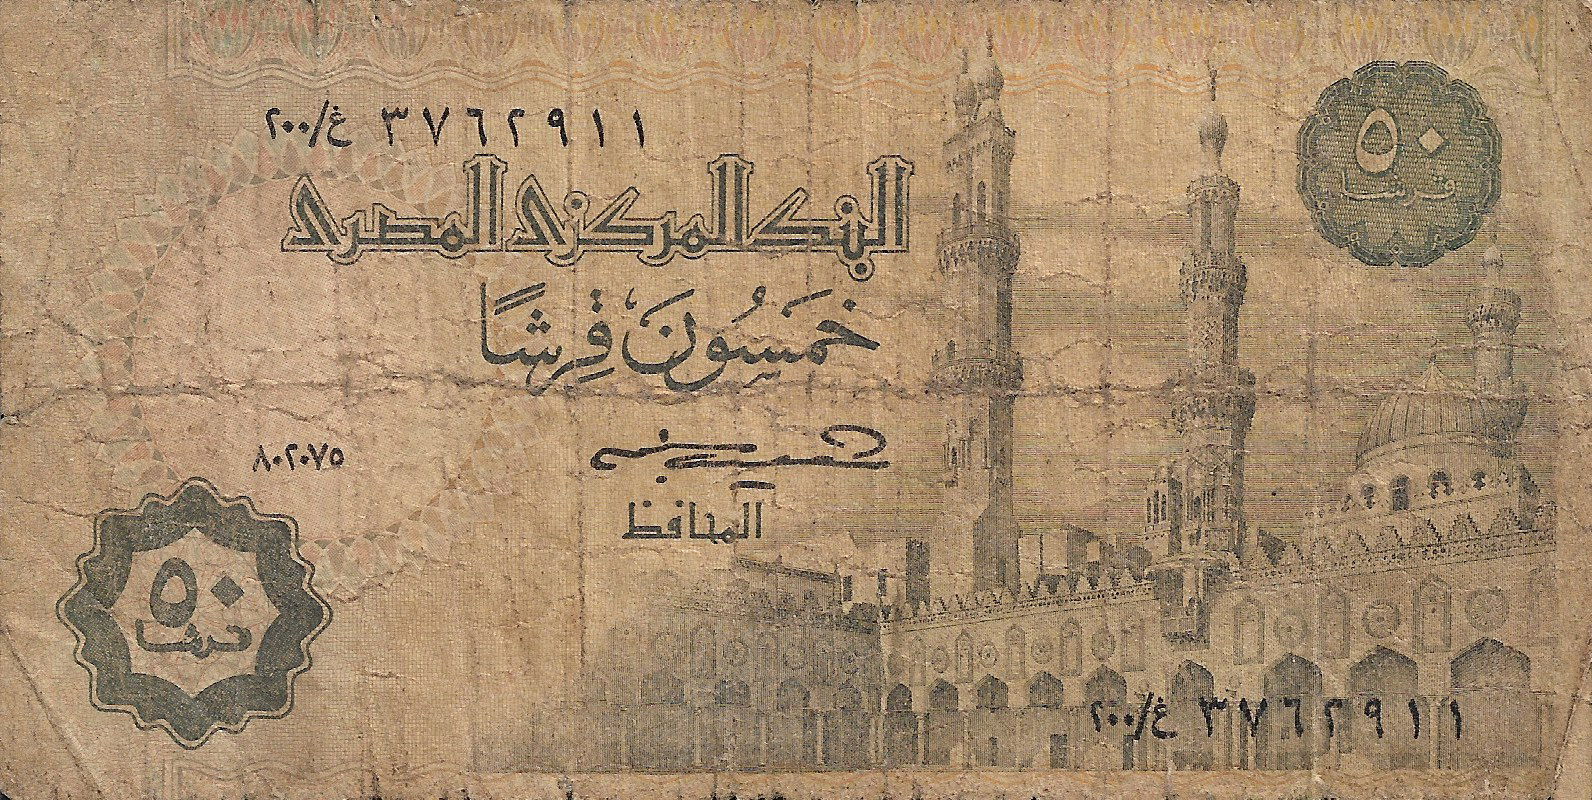 ٢٠٠/غ ٣٧٦٢٩١١
٥٠
قرشا
البنك المركزى المصرى
خَمسُونَ قِرشًا
٨٠٢٠٧٥
المحافظ
٥٠
قرشا
٢٠٠/غ ٣٧٦٢٩١١